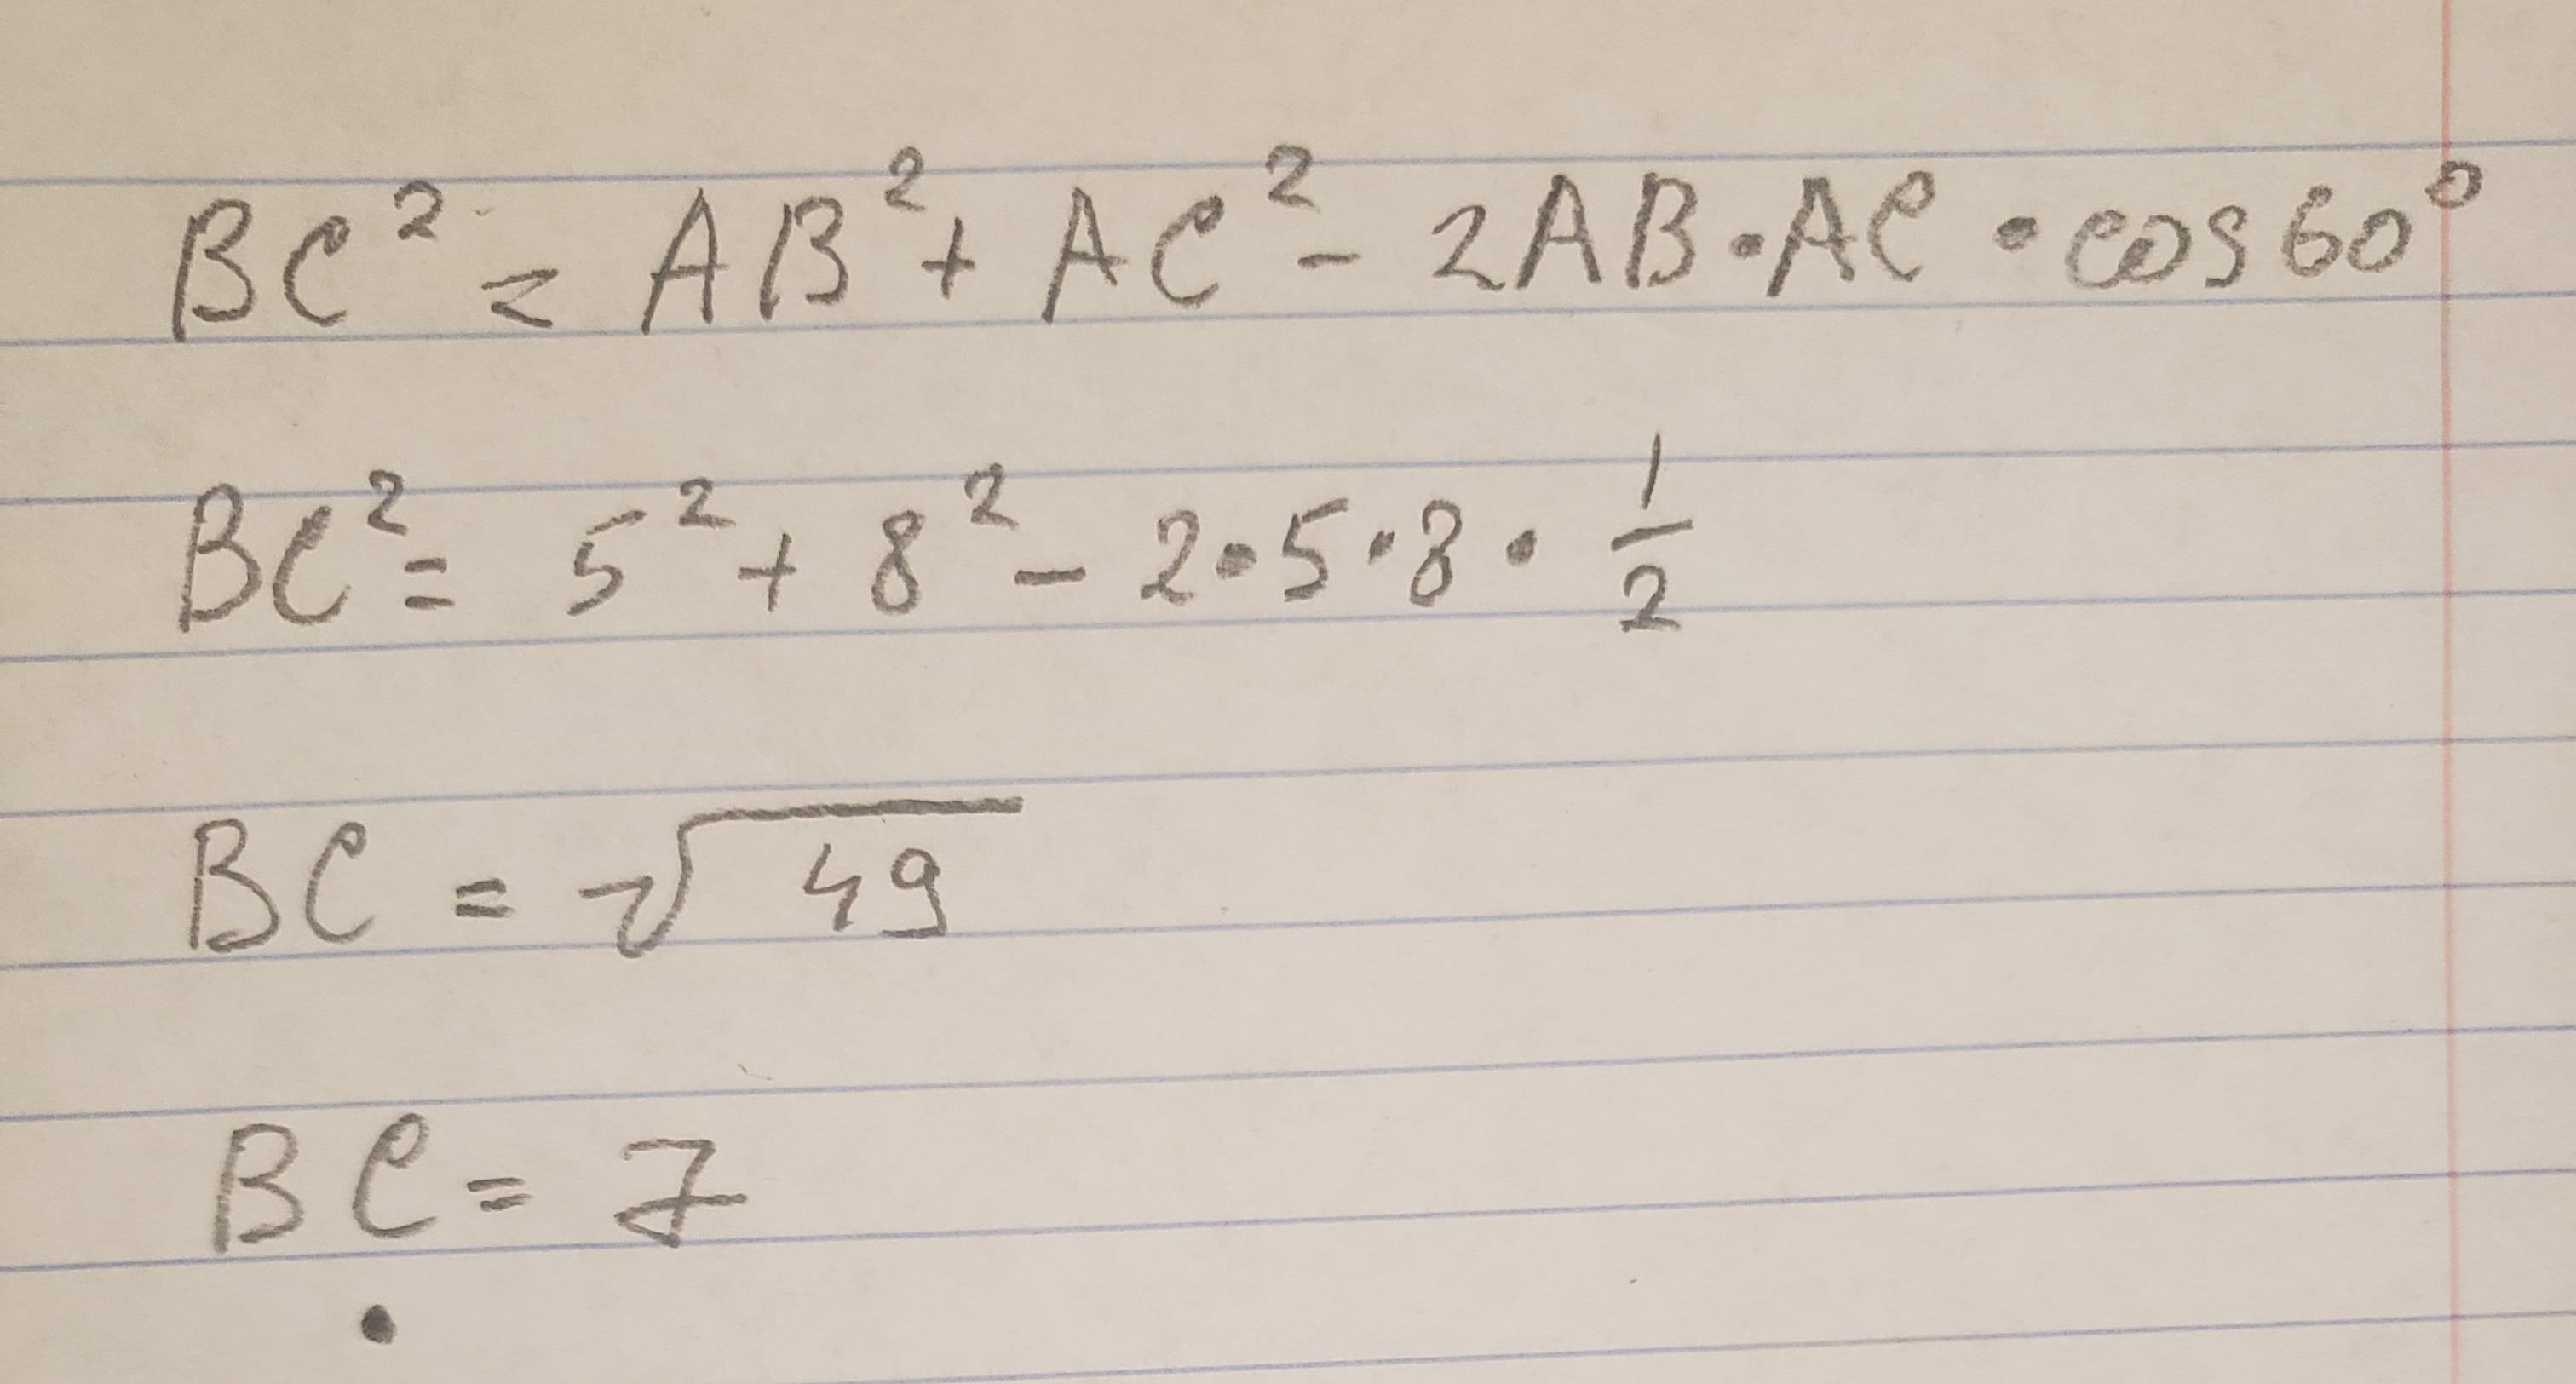 BC² = AB² + AC² - 2AB·AC·cos60°
BC² = 5² + 8² - 2·5·8·½
BC = √49
BC = 7